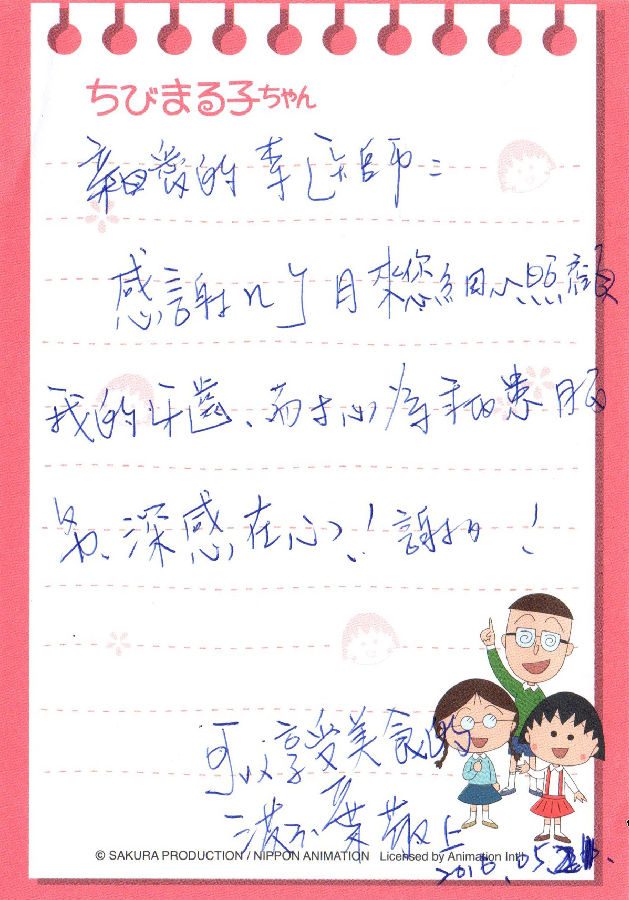 ちびまる子ちゃん
親愛的李医師:
感謝几个月來您細心照顧
我的牙齒、
深感在心!謝謝!
可以享受美食的
敬上
2016.05
© SAKURA PRODUCTION / NIPPON ANIMATION Licensed by Animation Int'l